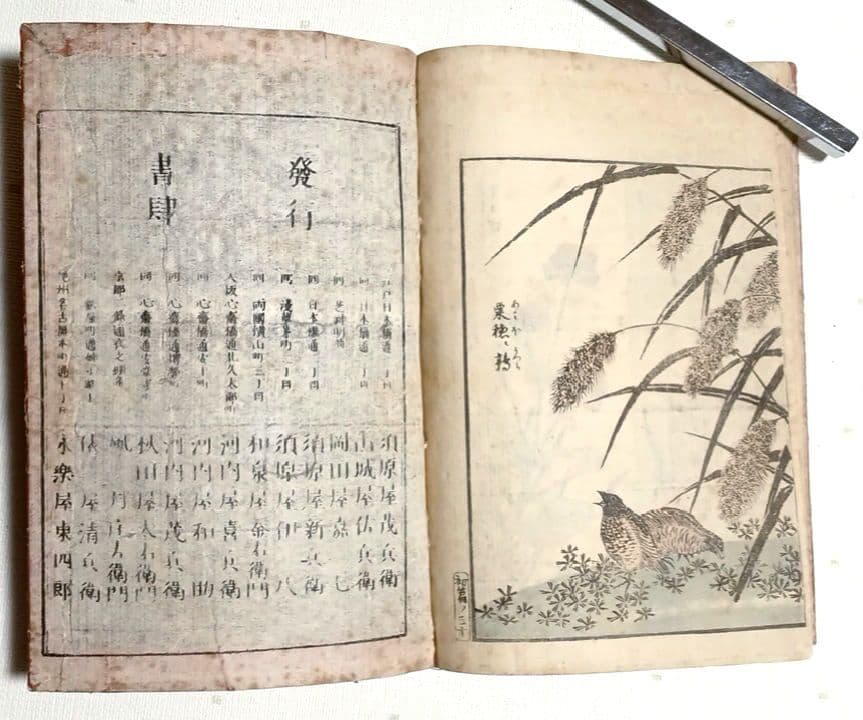 粟穂ニ鶉
發行
書肆
日本橋通 須原屋茂兵衛
同 日本橋通 丁目 山城屋佐兵衛
同 岡田屋嘉七
同 日本橋通 丁目 須原屋新兵衛
同 淺草茅町二丁目 須原屋伊八
同 兩國横山町三丁目 和泉屋金右衛門
大坂心齋橋通北久太郎町 河内屋喜兵衛
同 心齋橋通 河内屋和助
同 心齋橋通博労町 河内屋茂兵衛
同 心齋橋通安堂寺町 秋田屋太右衛門
京都 風月庄左衛門
同 俵屋清兵衛
尾州名古屋本町通 丁目 永樂屋東四郎